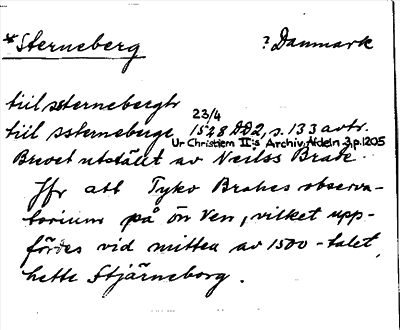 *Sterneberg
? Danmark
tiil sstternebergh
23/4
tiil ssterneberge 1528 DD2, s. 133 avtr.
Ur Christiern II:s Archiv, Afdeln 3, p. 1205
Brevet utställt av Neilss Brade.
Jfr att Tyko Brahes observa-
torium på ön Ven, vilket upp-
fördes vid mitten av 1500-talet,
hette Stjärneborg.